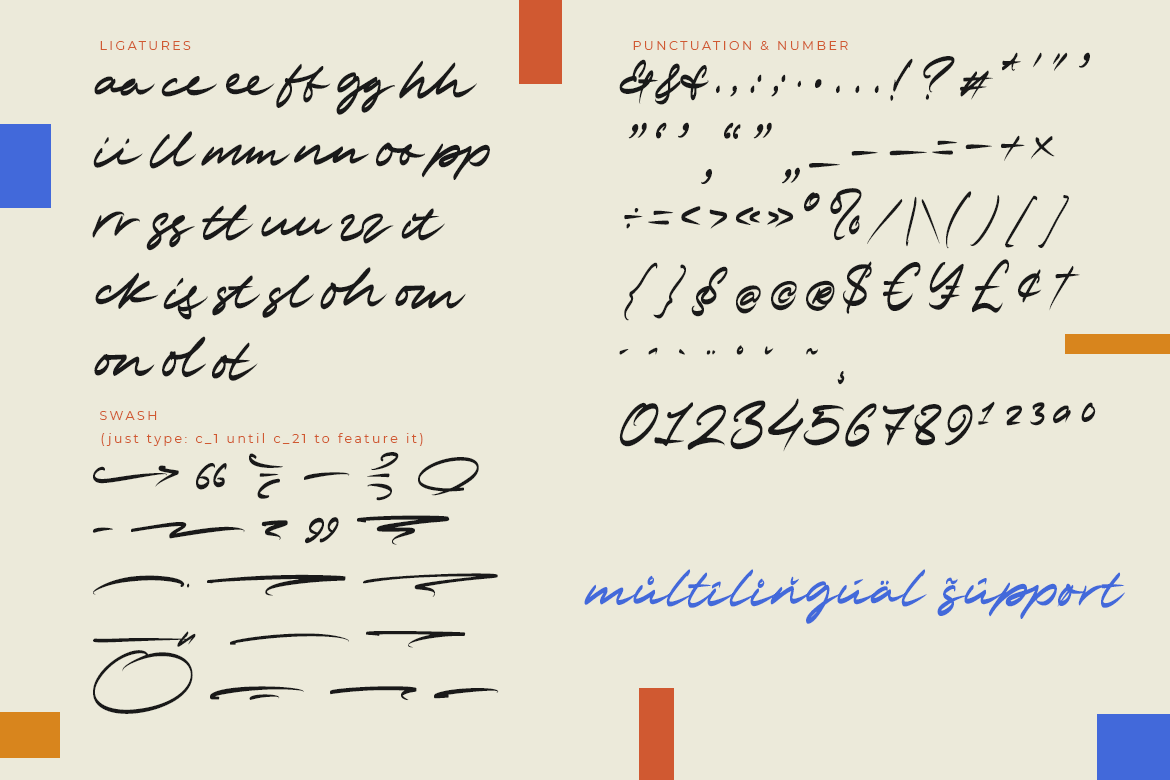 LIGATURES
aa ce ee ff gg hh
ii ll mm nn oo pp
rr ss tt uu zz it
ck is st sl oh om
on ol ot
SWASH
(just type: c_1 until c_21 to feature it)
PUNCTUATION & NUMBER
& & & . , : ; · • . . . . ! ? # * ' " ’
” ‘ ’ , “ ” „ _ – — — = − + ×
÷ = < > « » º % / | \ ( ) [ ]
{ } § @ © ® $ € ¥ £ ¢ †
´ ˆ ` ¨ ˚ ˇ ˜ ¸
0123456789 ¹ ² ³ ª º
můltîlíňgúäl s̃úpport